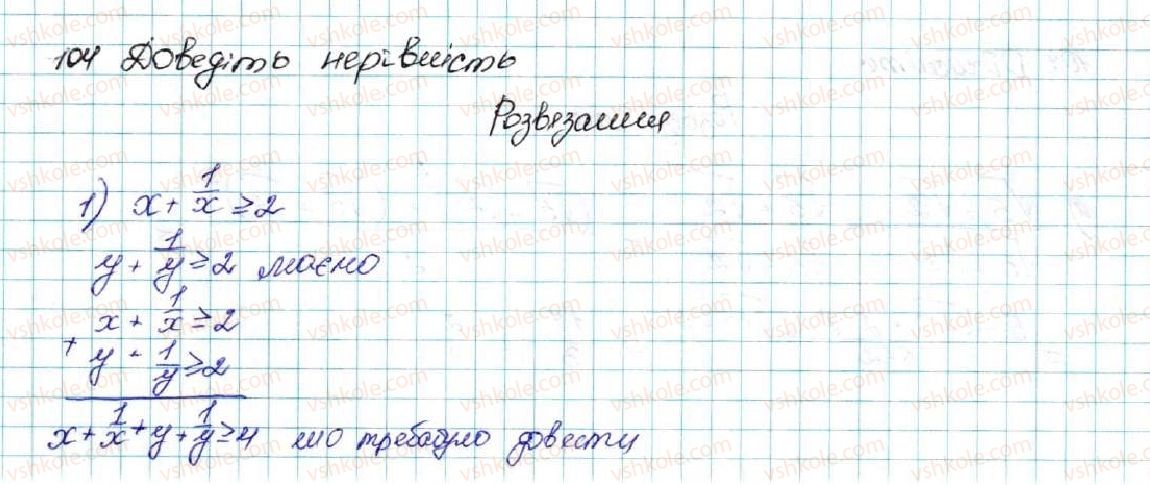 104 Доведіть нерівність
Розвязання
1) x + 1/x ≥ 2
y + 1/y ≥ 2 маємо
x + 1/x ≥ 2
+ y + 1/y ≥ 2
x + 1/x + y + 1/y ≥ 4 що требабуло довести